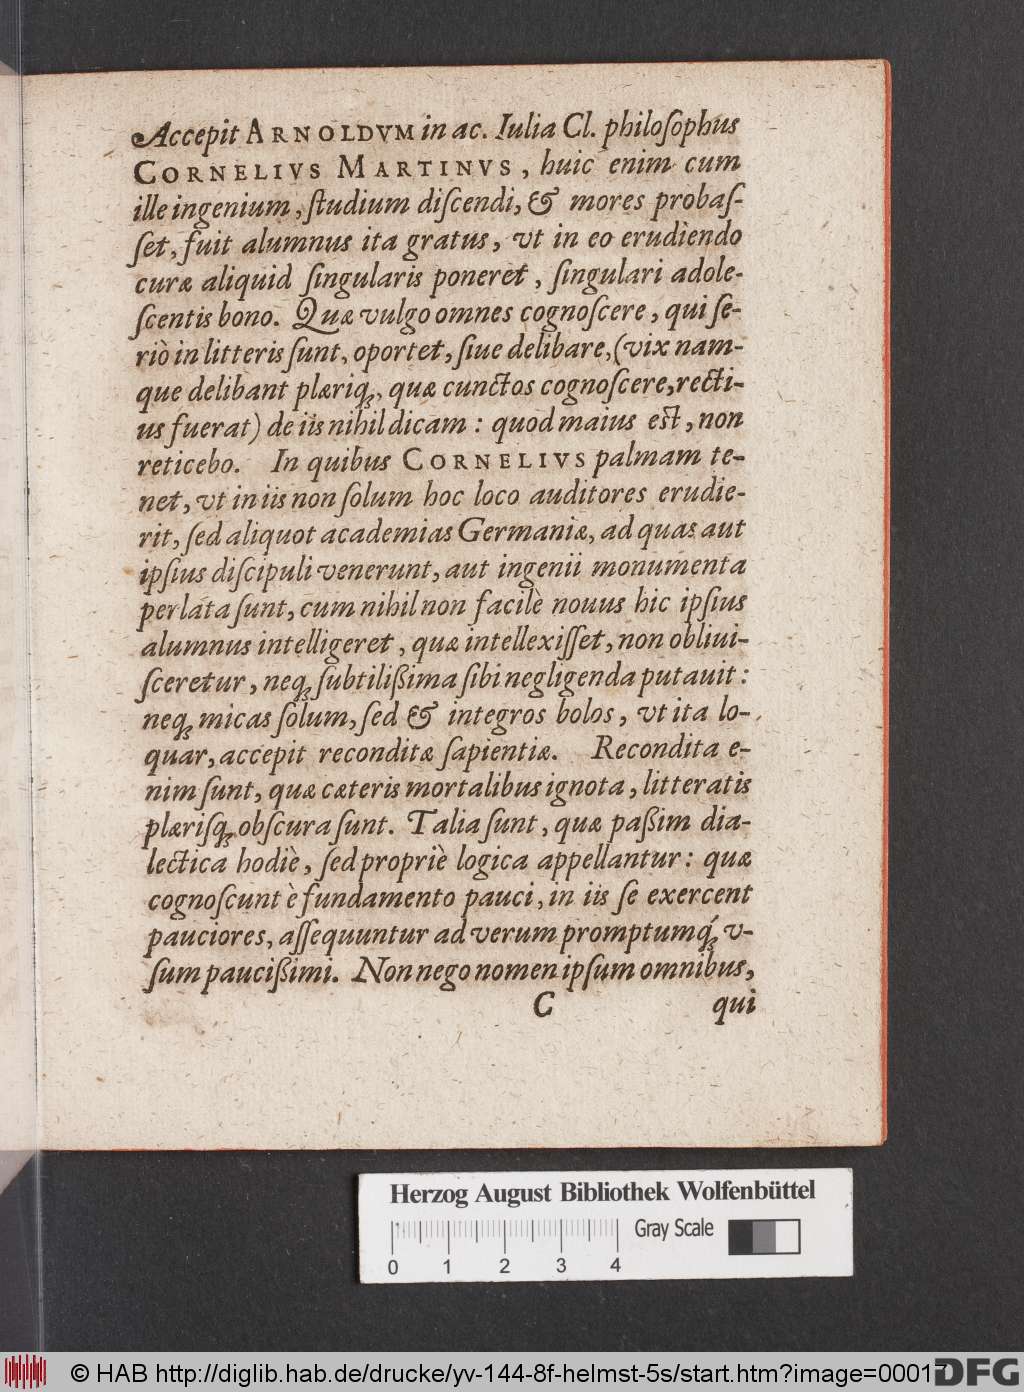 Accepit ARNOLDVM in ac. Iulia Cl. philoſophus
CORNELIVS MARTINVS, huic enim cum
ille ingenium, ſtudium diſcendi, & mores probaſ-
ſet, fuit alumnus ita gratus, vt in eo erudiendo
curæ aliquid ſingularis poneret, ſingulari adole-
ſcentis bono. Quæ vulgo omnes cognoſcere, qui ſe-
riò in litteris ſunt, oportet, ſiue delibare, (vix nam-
que delibant plæriq́;, quæ cunctos cognoſcere, recti-
us fuerat) de iis nihil dicam: quod maius eſt, non
reticebo. In quibus CORNELIVS palmam te-
net, vt in iis non ſolum hoc loco auditores erudie-
rit, ſed aliquot academias Germaniæ, ad quas aut
ipſius diſcipuli venerunt, aut ingenii monumenta
perlata ſunt, cum nihil non facilè nouus hic ipſius
alumnus intelligeret, quæ intellexiſſet, non obliui-
ſceretur, neq; ſubtilißima ſibi negligenda putauit:
neq; micas ſolum, ſed & integros bolos, vt ita lo-
quar, accepit reconditæ ſapientiæ. Recondita e-
nim ſunt, quæ cæteris mortalibus ignota, litteratis
plæriſq; obſcura ſunt. Talia ſunt, quæ paßim dia-
lectica hodiè, ſed propriè logica appellantur: quæ
cognoſcunt è fundamento pauci, in iis ſe exercent
pauciores, aſſequuntur ad verum promptumq́; v-
ſum paucißimi. Non nego nomen ipſum omnibus,
C qui
Herzog August Bibliothek Wolfenbüttel
Gray Scale
0 1 2 3 4
© HAB http://diglib.hab.de/drucke/yv-144-8f-helmst-5s/start.htm?image=00017
DFG